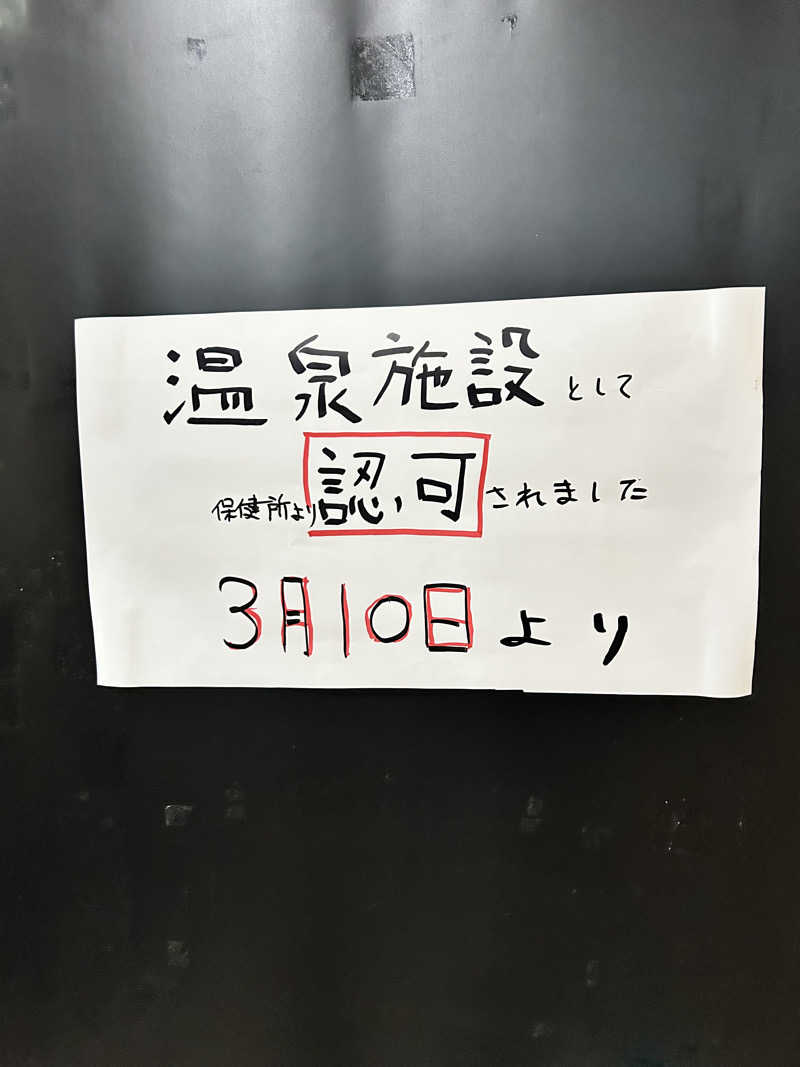 温泉施設として
保健所より認可されました
3月10日より